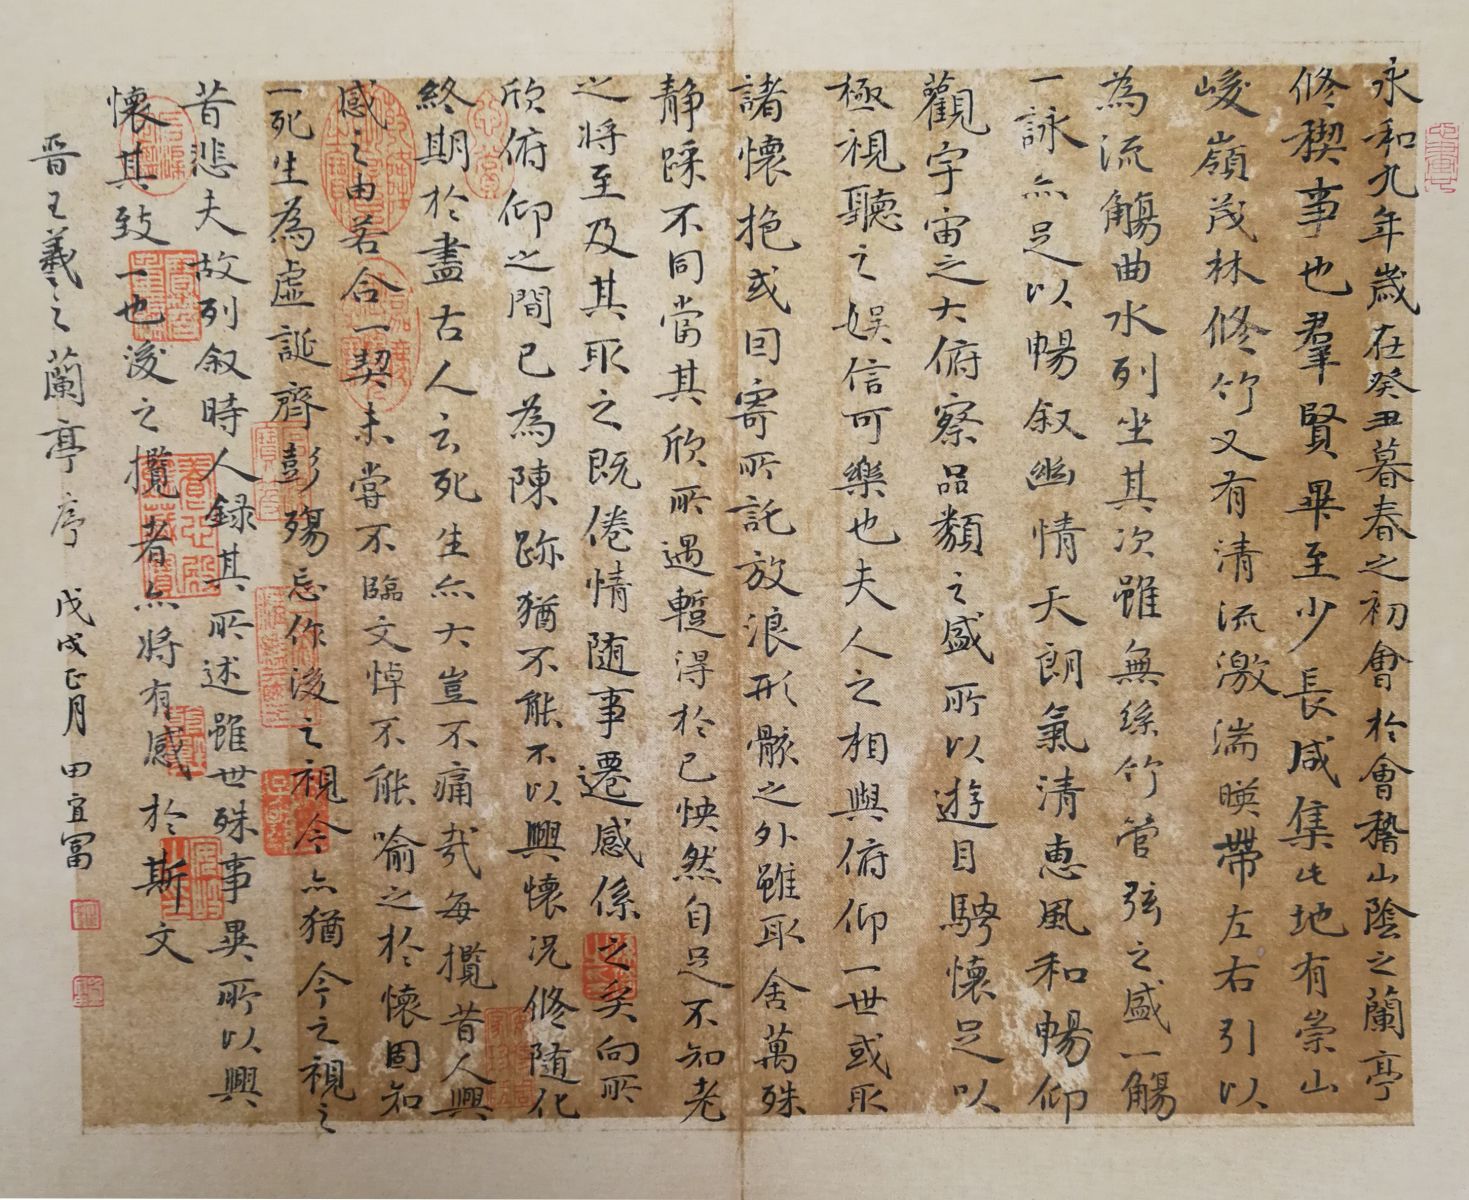 永和九年歲在癸丑暮春之初會於會稽山陰之蘭亭
修禊事也羣賢畢至少長咸集此地有崇山
峻嶺茂林修竹又有清流激湍暎帶左右引以
為流觴曲水列坐其次雖無絲竹管弦之盛一觴
一詠亦足以暢叙幽情天朗氣清惠風和暢仰
觀宇宙之大俯察品類之盛所以遊目騁懷足以
極視聽之娱信可樂也夫人之相與俯仰一世或取
諸懷抱或因寄所託放浪形骸之外雖取舍萬殊
静躁不同當其欣所遇蹔得於己怏然自足不知老
之將至及其所之既倦情隨事遷感係之矣向所
欣俯仰之間已為陳跡猶不能不以興懷況修隨化
終期於盡古人云死生亦大豈不痛哉每攬昔人興
感之由若合一契未嘗不臨文悼不能喻之於懷固知
一死生為虛誕齊彭殤忘作後之視今亦猶今之視之
昔悲夫故列叙時人録其所述雖世殊事異所以興
懷其致一也後之攬者亦將有感於斯文
晋王羲之蘭亭序 戊戌正月 田宜富